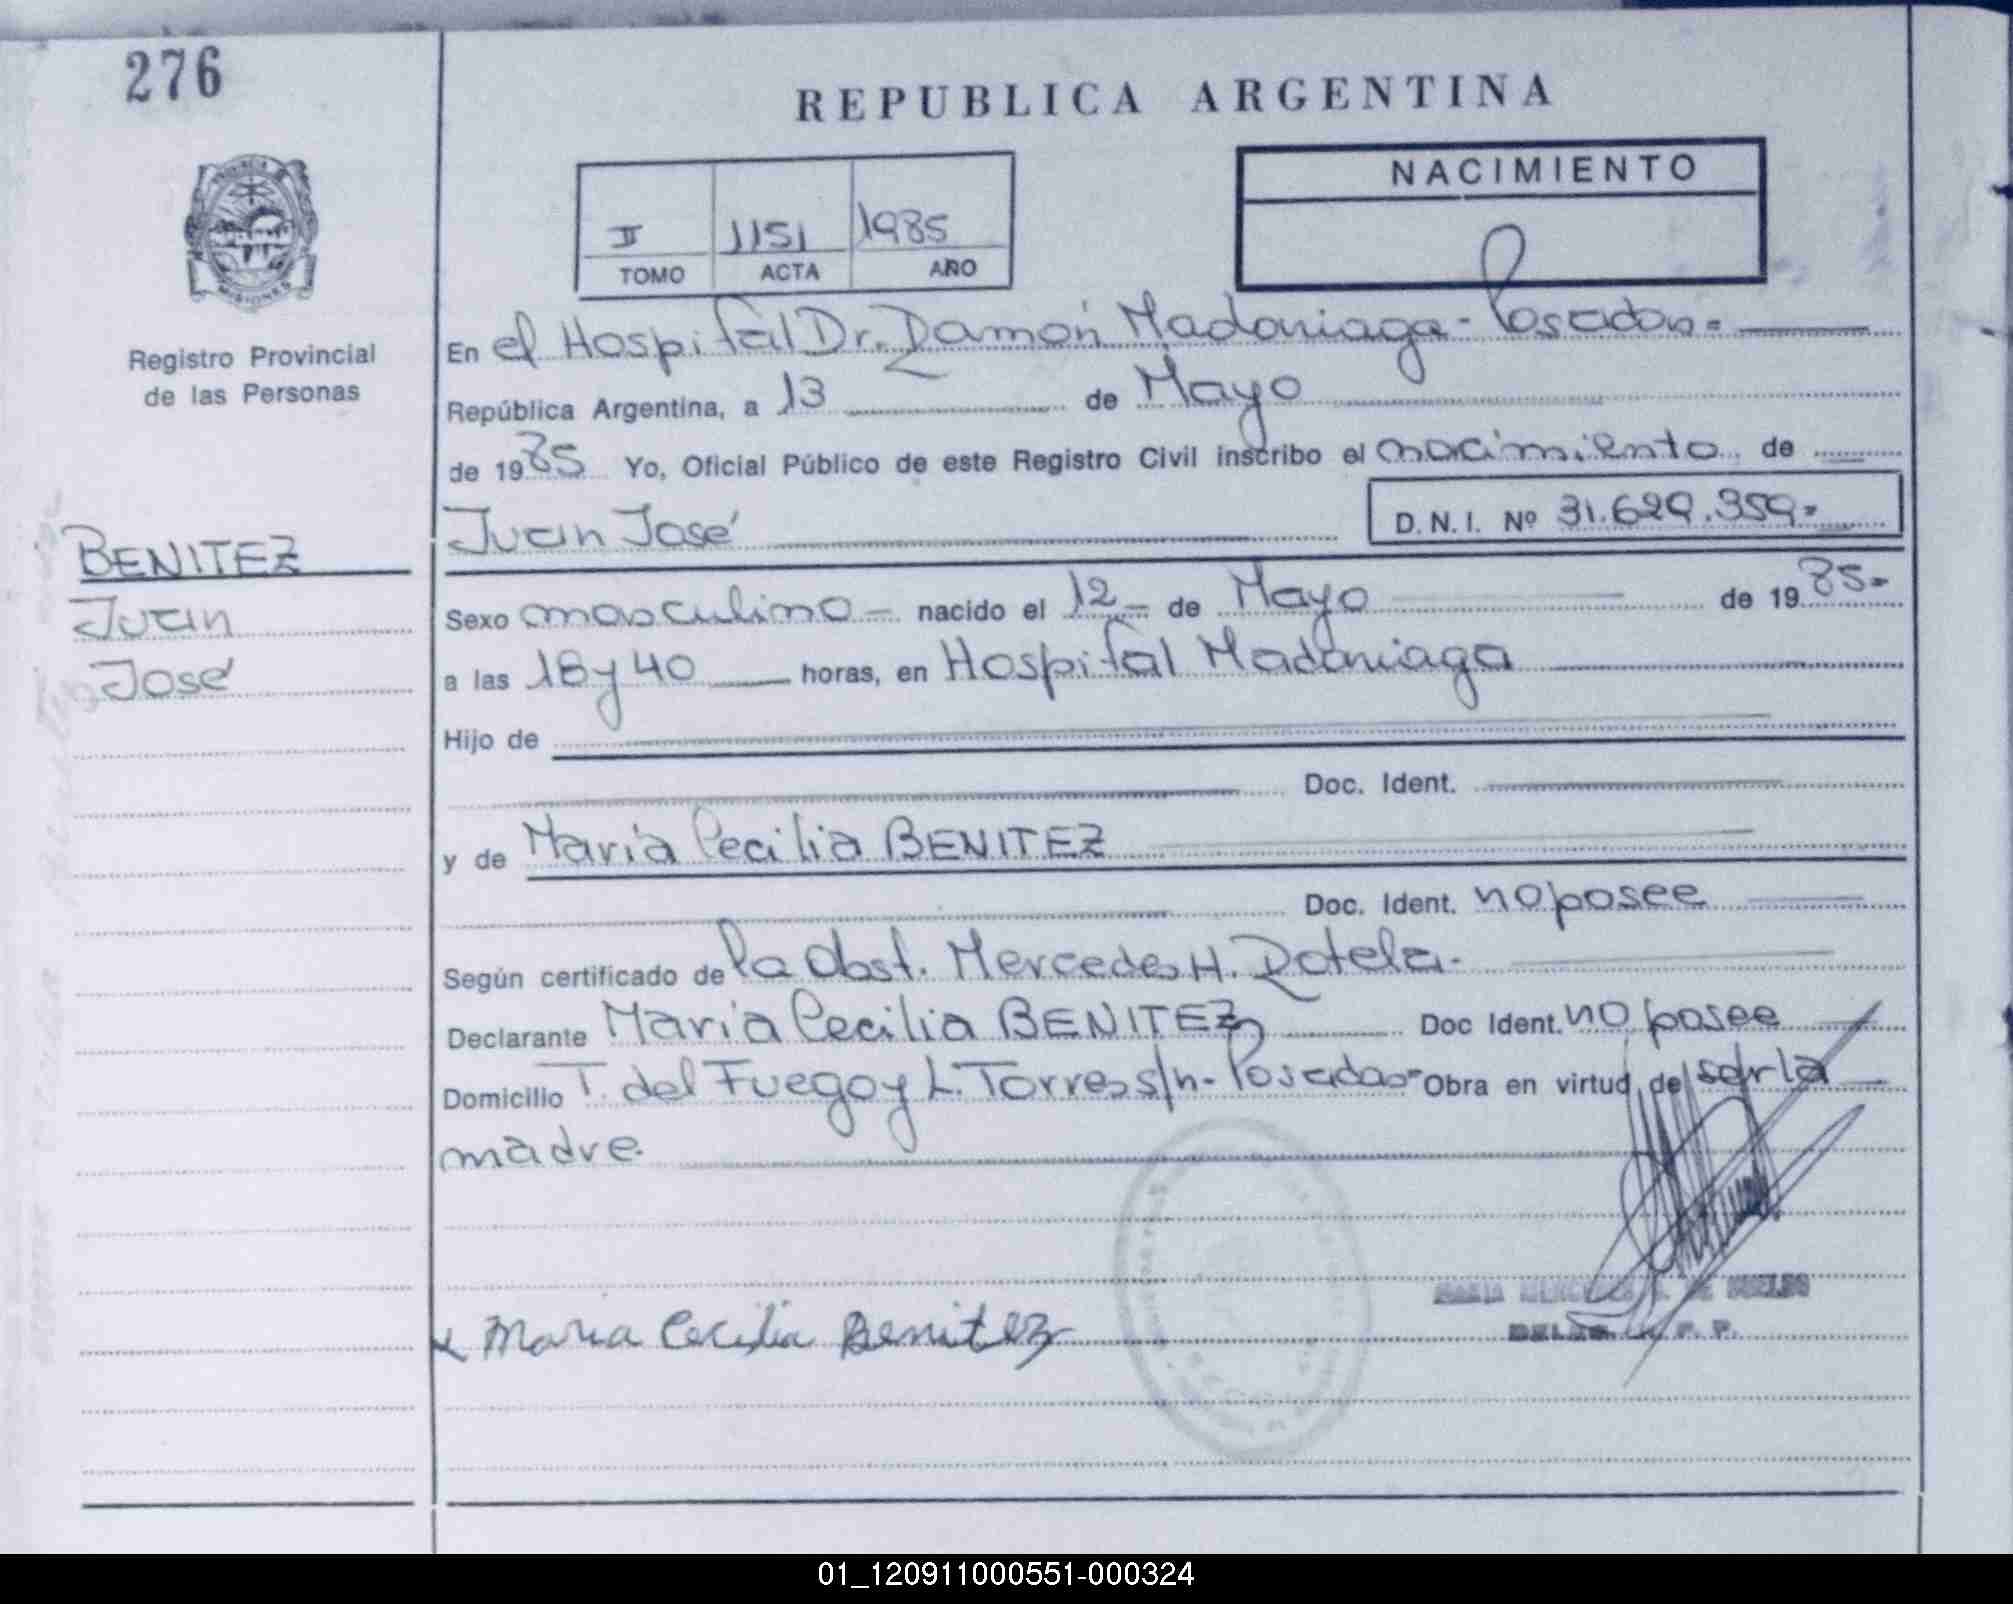 276
REPUBLICA ARGENTINA
NACIMIENTO
II 1151 1985
TOMO ACTA AÑO
PROVINCIA
MISIONES
Registro Provincial
de las Personas
BENITEZ
Juan
José
En el Hospital Dr. Ramón Madariaga - Posadas =
República Argentina, a 13 de Mayo
de 1985 Yo, Oficial Público de este Registro Civil inscribo el nacimiento de
Juan José D.N.I. Nº 31.629.359=
Sexo masculino - nacido el 12 - de Mayo de 1985=
a las 18 y 40 horas, en Hospital Madariaga
Hijo de
Doc. Ident.
y de María Cecilia BENITEZ
Doc. Ident. no posee
Según certificado de la Obst. Mercedes H. Rotela.
Declarante María Cecilia BENITEZ Doc Ident. no posee
Domicilio T. del Fuego y L. Torres s/n - Posadas = Obra en virtud de ser la
madre.
x Maria Cecilia Benitez
MARIA MERCEDES DE
01_120911000551-000324